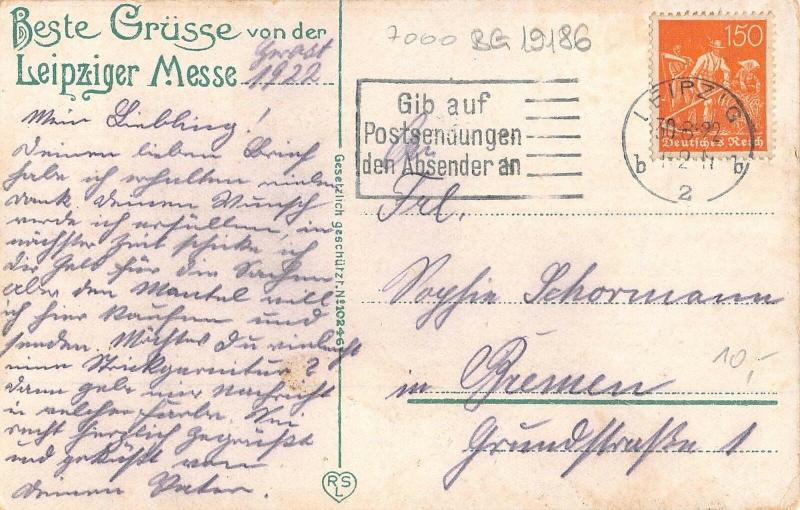 Beste Grüsse von der
Leipziger Messe
Herbst
1922
Mein Liebling!
Deinen lieben Brief
habe ich erhalten vielen
Dank. Deinen Wunsch
werde ich erfüllen, in
nächster Zeit schicke ich
Dir Geld für die Sachen
aber den Mantel will
ich hier kaufen und
senden. Möchtest Du vielleicht
eine Strickgarnitur?
dann gebe mir Nachricht
in welcher Farbe. Nun
recht herzlich gegrüßt
und geküßt von
Deinem Vater.
Gesetzlich geschützt. No. 10246
RSL
7000 BG 19186
Gib auf
Postsendungen
den Absender an
LEIPZIG
30-8-22
b 1-2 N b
2
150
Deutsches Reich
An
Frl.
Sophie Schormann
in Bremen
Grundstraße 1
10,-